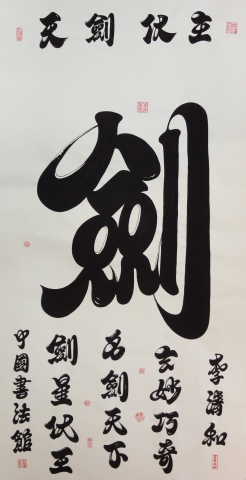 主伏劍天
劍
李清和
玄妙巧奇
名劍天下
劍星伏王
中國書法館